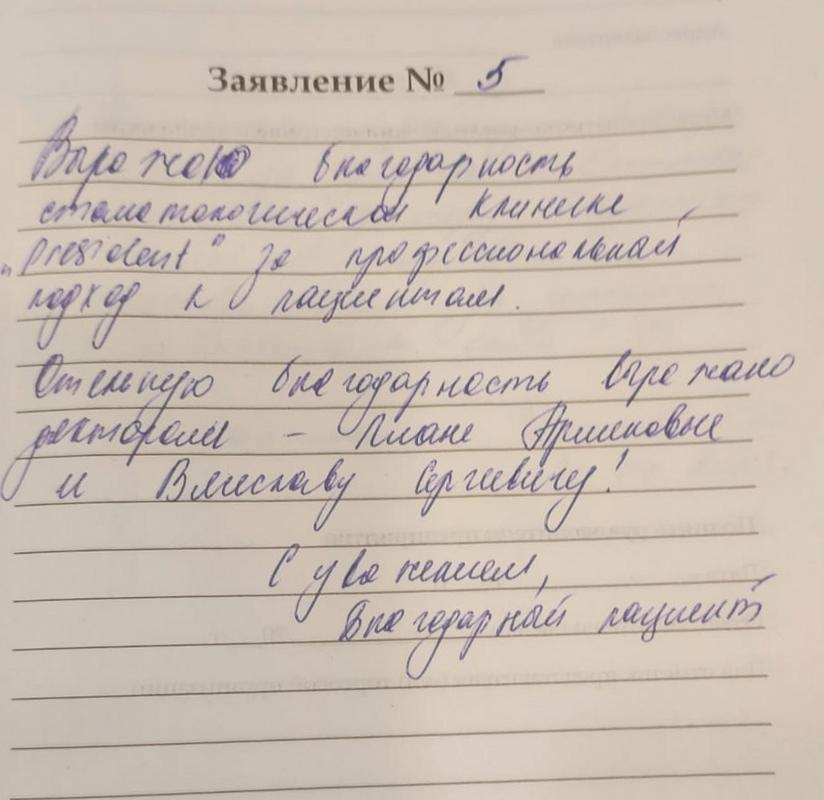 Заявление № 5
Выражаю благодарность
стоматологической клинике
"President" за профессиональный
подход к пациентам.
Отельную благодарность выражаю
докторам – Лиане
и Сергеевичу!
С уважением,
благодарный пациент